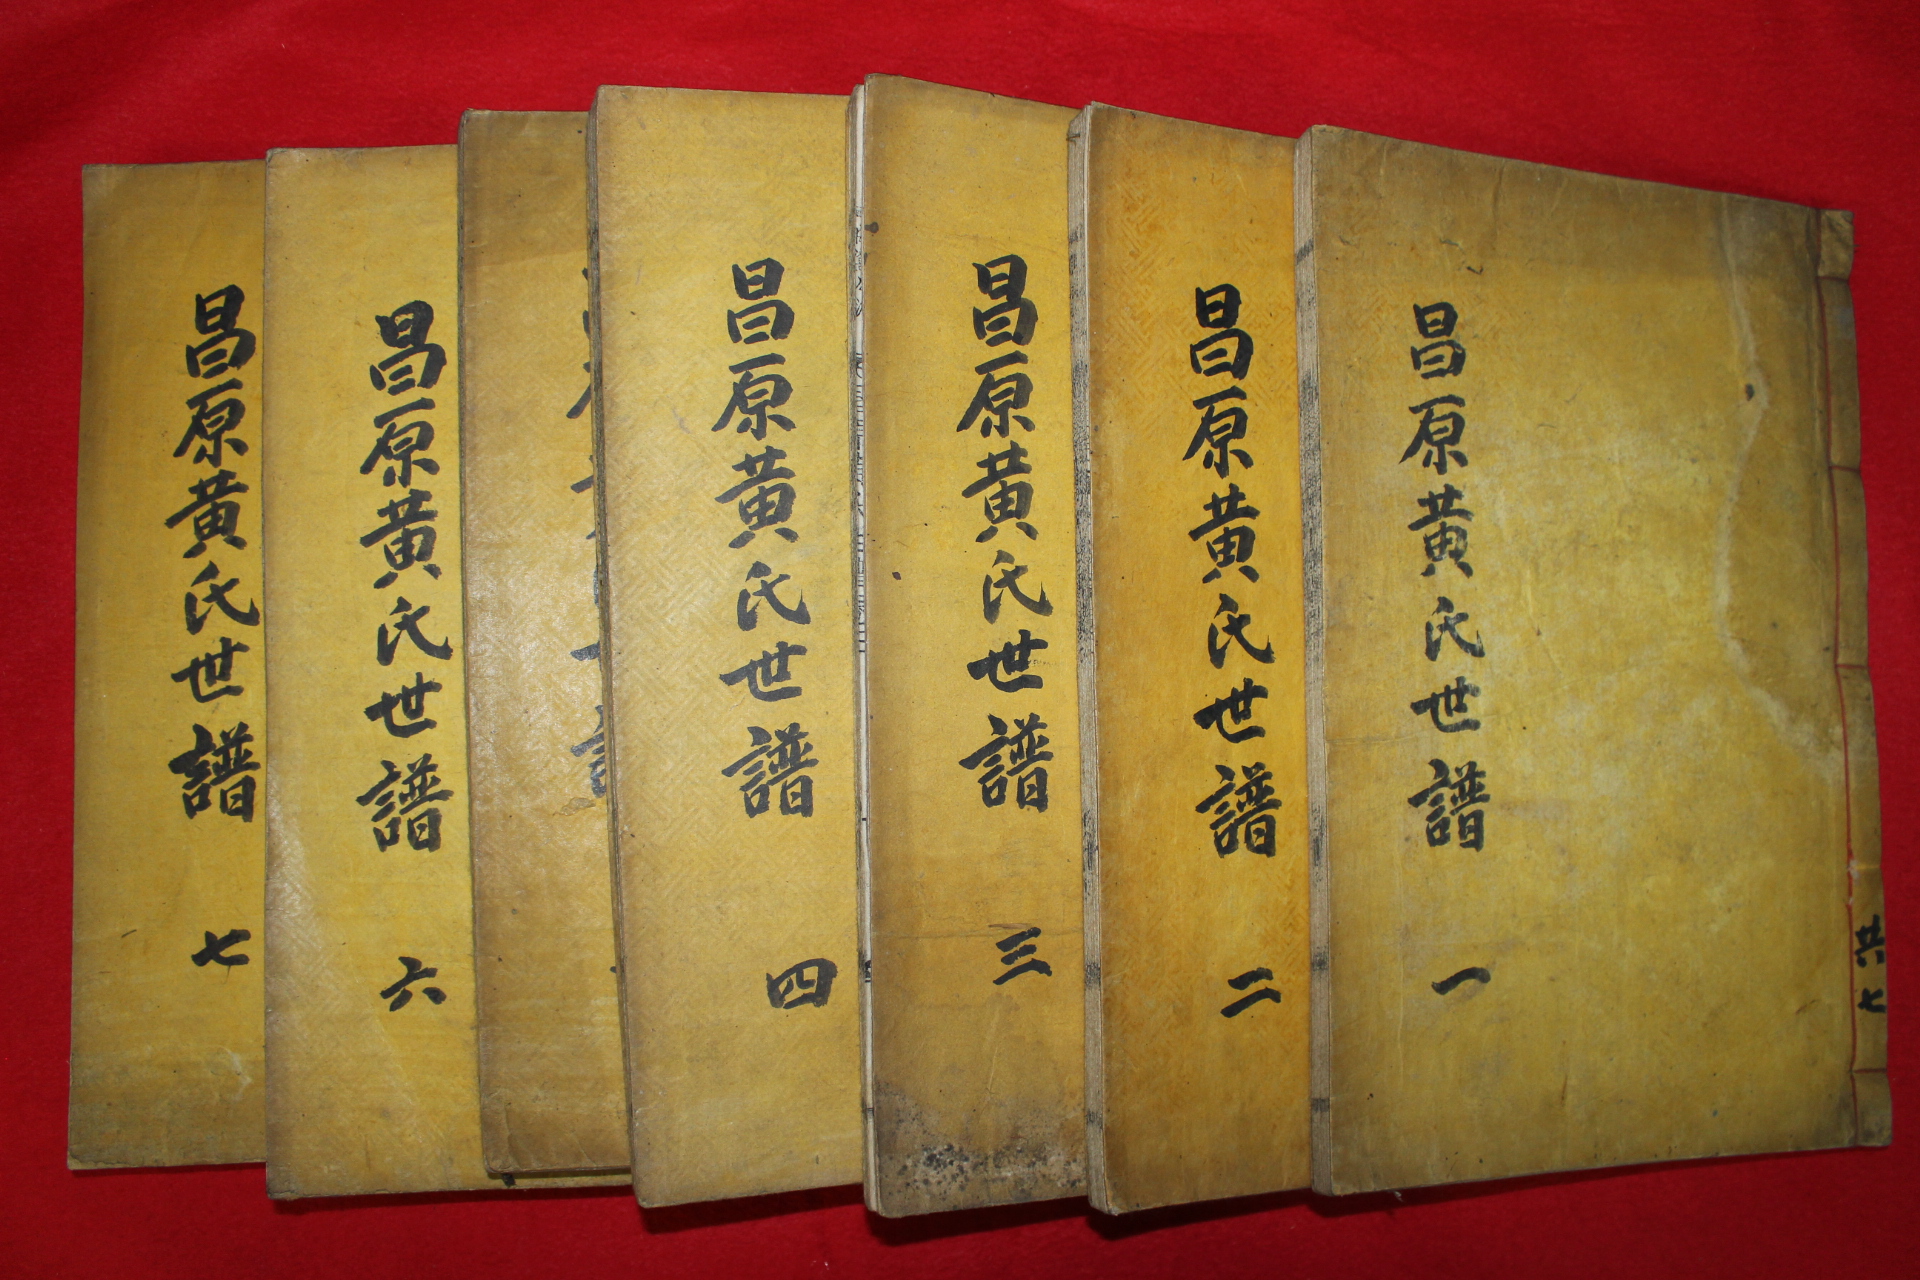 昌原黃氏世譜 一
共七
昌原黃氏世譜 二
昌原黃氏世譜 三
昌原黃氏世譜 四
昌原黃氏世譜 六
昌原黃氏世譜 七